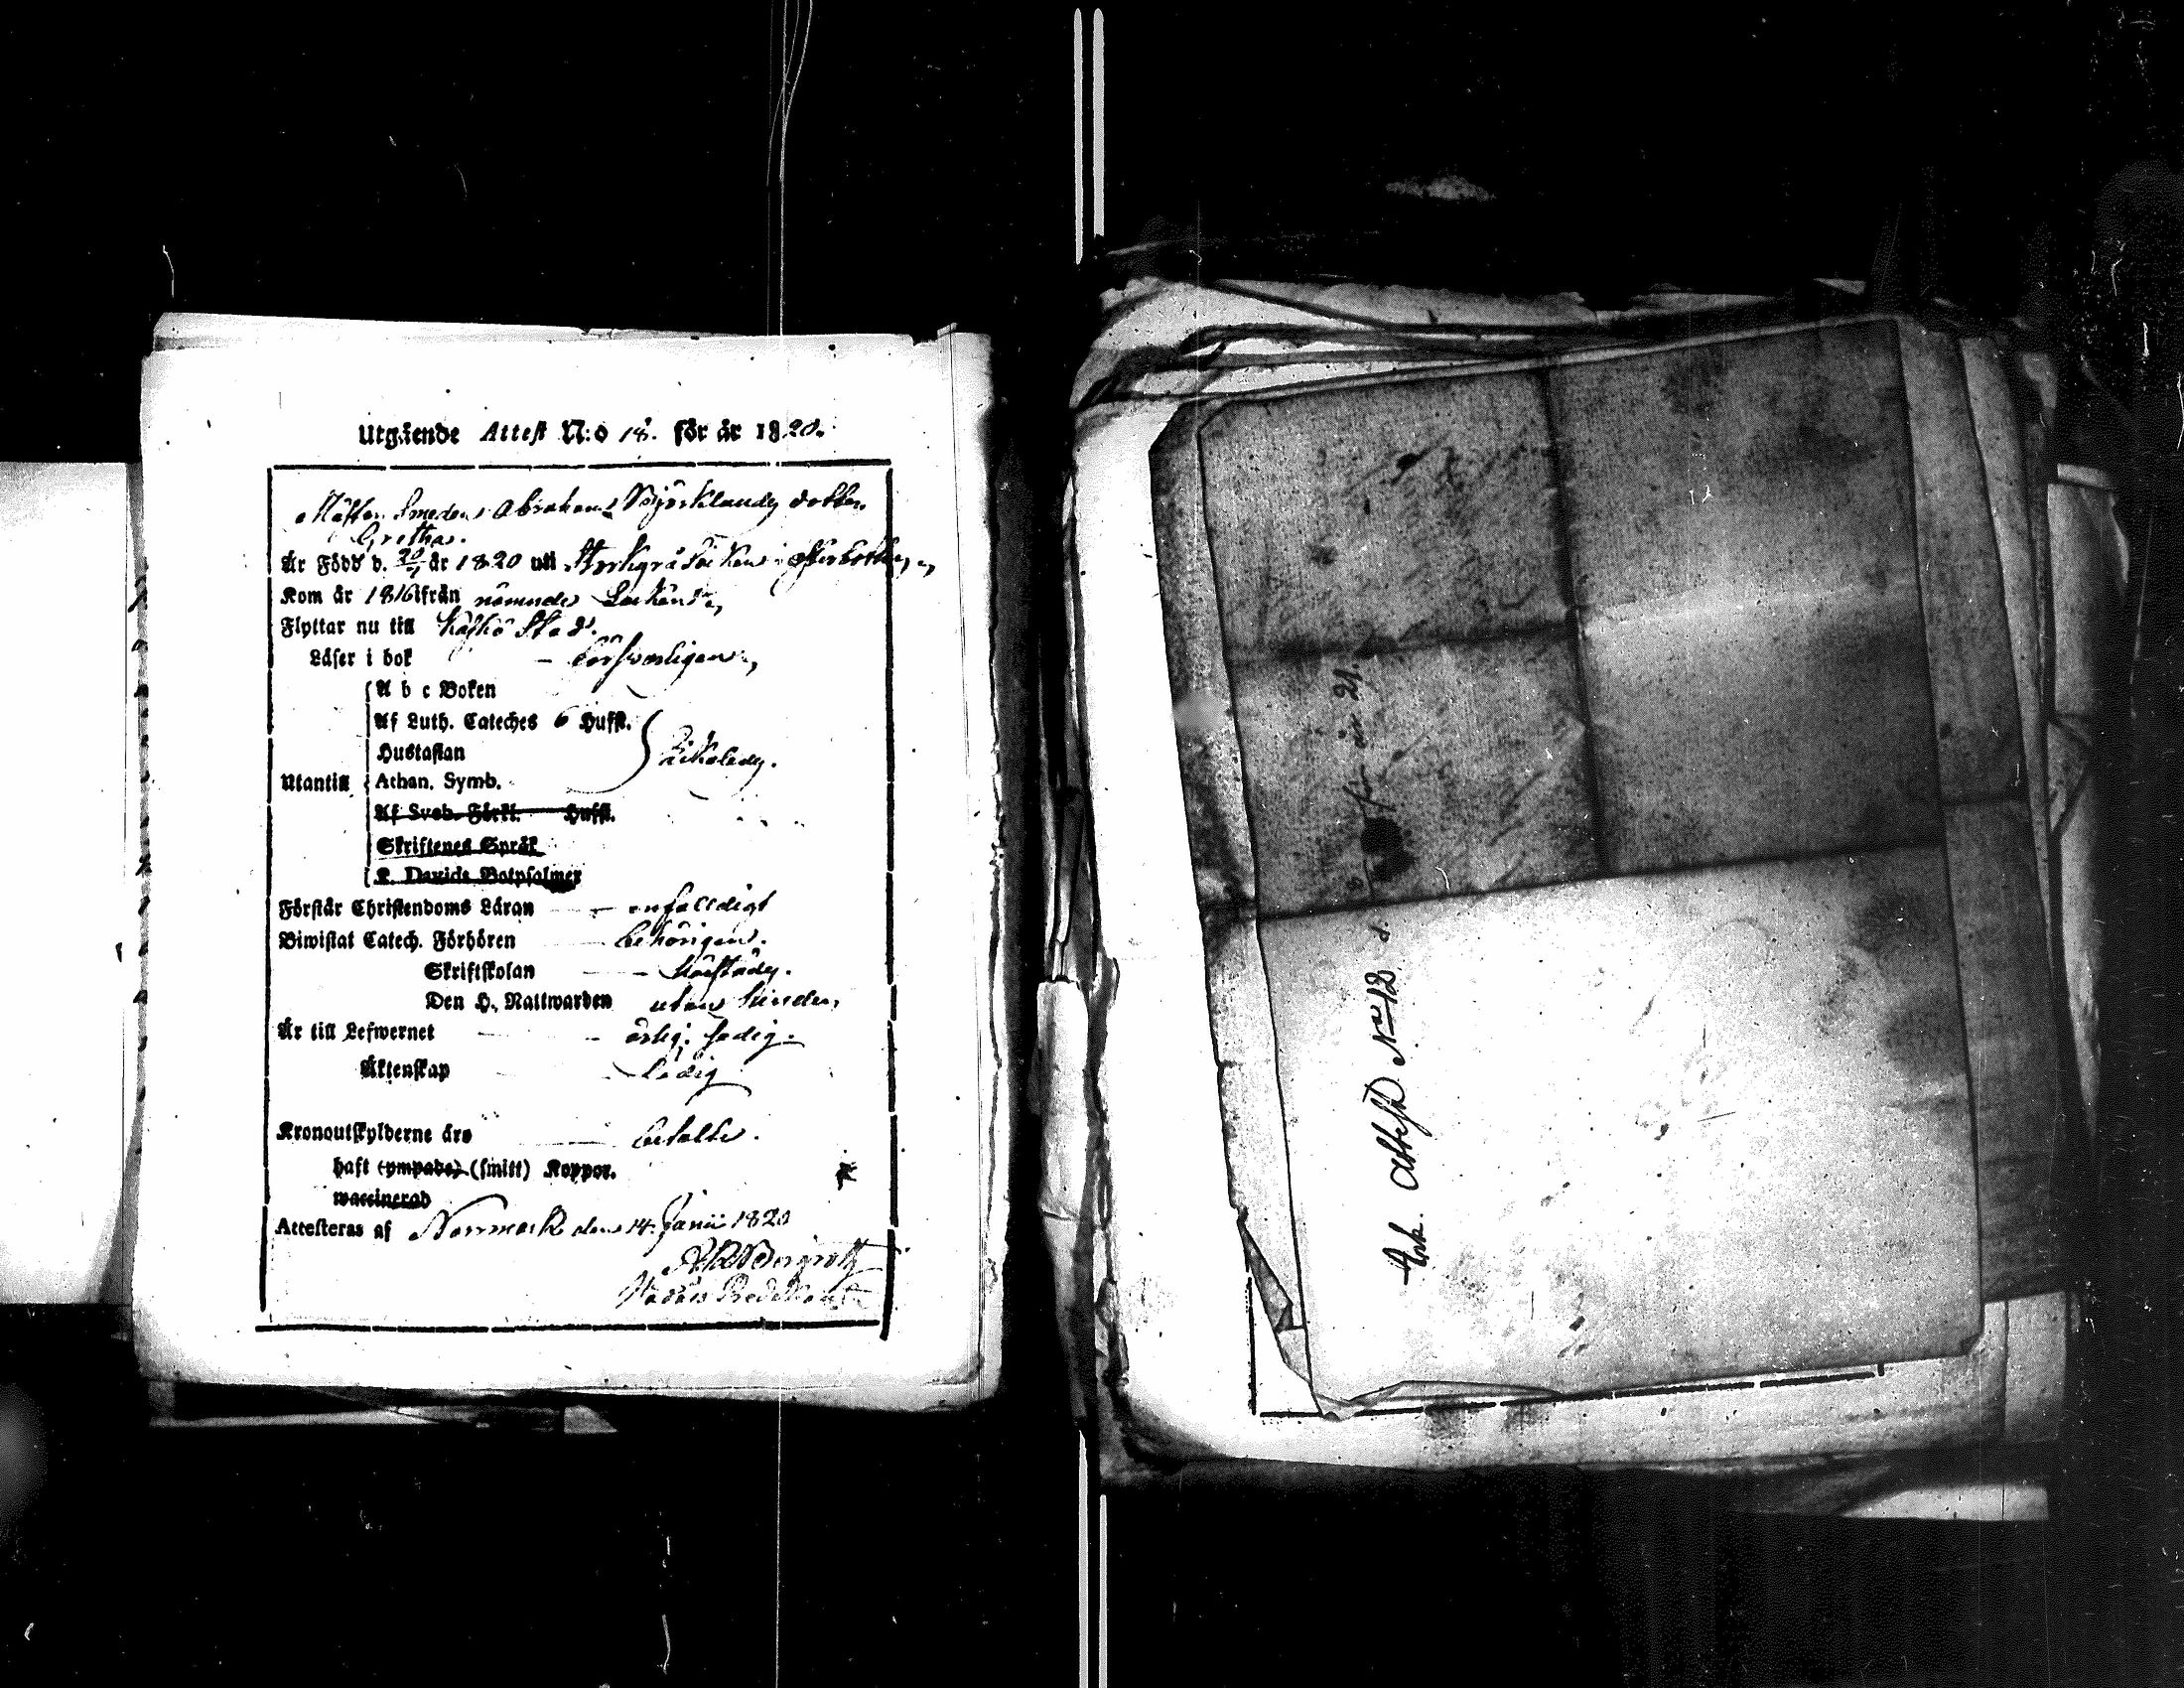 Utgående Attest N:o 18. för år 1820.
Mäster Smeden Abrahams Björklunds dotter
Gretha.
Är Född d. 20/1 år 1820 uti Storkyrå Socken i Österbotten,
Kom år 1816 ifrån nämnde Socken,
Flyttar nu till Kaskö Stad.
Läser i bok – försvarligen,
A b c Boken
Af Luth. Cateches 6 Hufst.
Hustaflan
Utantill Athan. Symb.
Af Sveb. Förkl. Hufst.
Skriftenes Språk
K. Davids Botpsalmer
Förstår Christendoms Läran – enfaldigt
Biwistat Catech. Förhören behörigen.
Skriftskolan –
Den H. Nattwarden utan hinder,
Är till Lefwernet – ärlig.
Äktenskap Ledig
Kronoutskylderne äro betalte.
haft (ympade) (smitt) Koppor.
waccinerad
Attesteras af Norrmark den 14. Junii 1820
Ank. Attest N:o 12 d. för år 21.